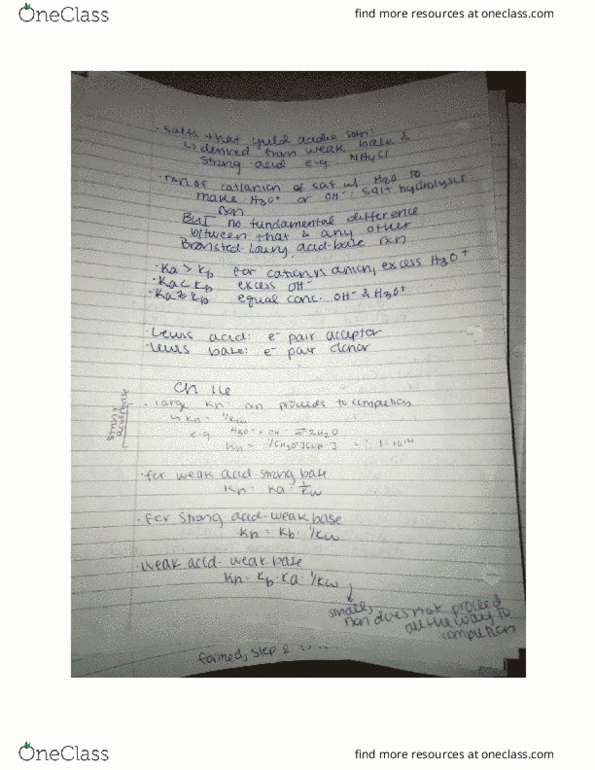 OneClass
find more resources at oneclass.com
· salts that yield acidic soln:
↳ derived from weak base &
strong acid e.g. NH4Cl
· rxn of cat/anion of salt w/ H2O to
make H3O+ or OH-: salt hydrolysis
rxn
BUT no fundamental difference
between that & any other
Bronsted-Lowry acid-base rxn
· Ka > Kb for cation vs anion, excess H3O+
· Ka < Kb excess OH-
· Ka ≈ Kb equal conc. OH- & H3O+
· Lewis acid: e- pair acceptor
· Lewis base: e- pair donor
Ch 16
· large Kn: rxn proceeds to completion
↳ Kn = 1/Kw
e.g. H3O+ + OH- ⇌ 2H2O
Kn = 1/[H3O+][OH-]
· for weak acid-strong base
Kn = Ka · 1/Kw
· for strong acid-weak base
Kn = Kb · 1/Kw
· weak acid-weak base
Kn = Kb · Ka · 1/Kw
small,
rxn does not proceed
all the way to
completion
formed, step 2
OneClass
find more resources at oneclass.com